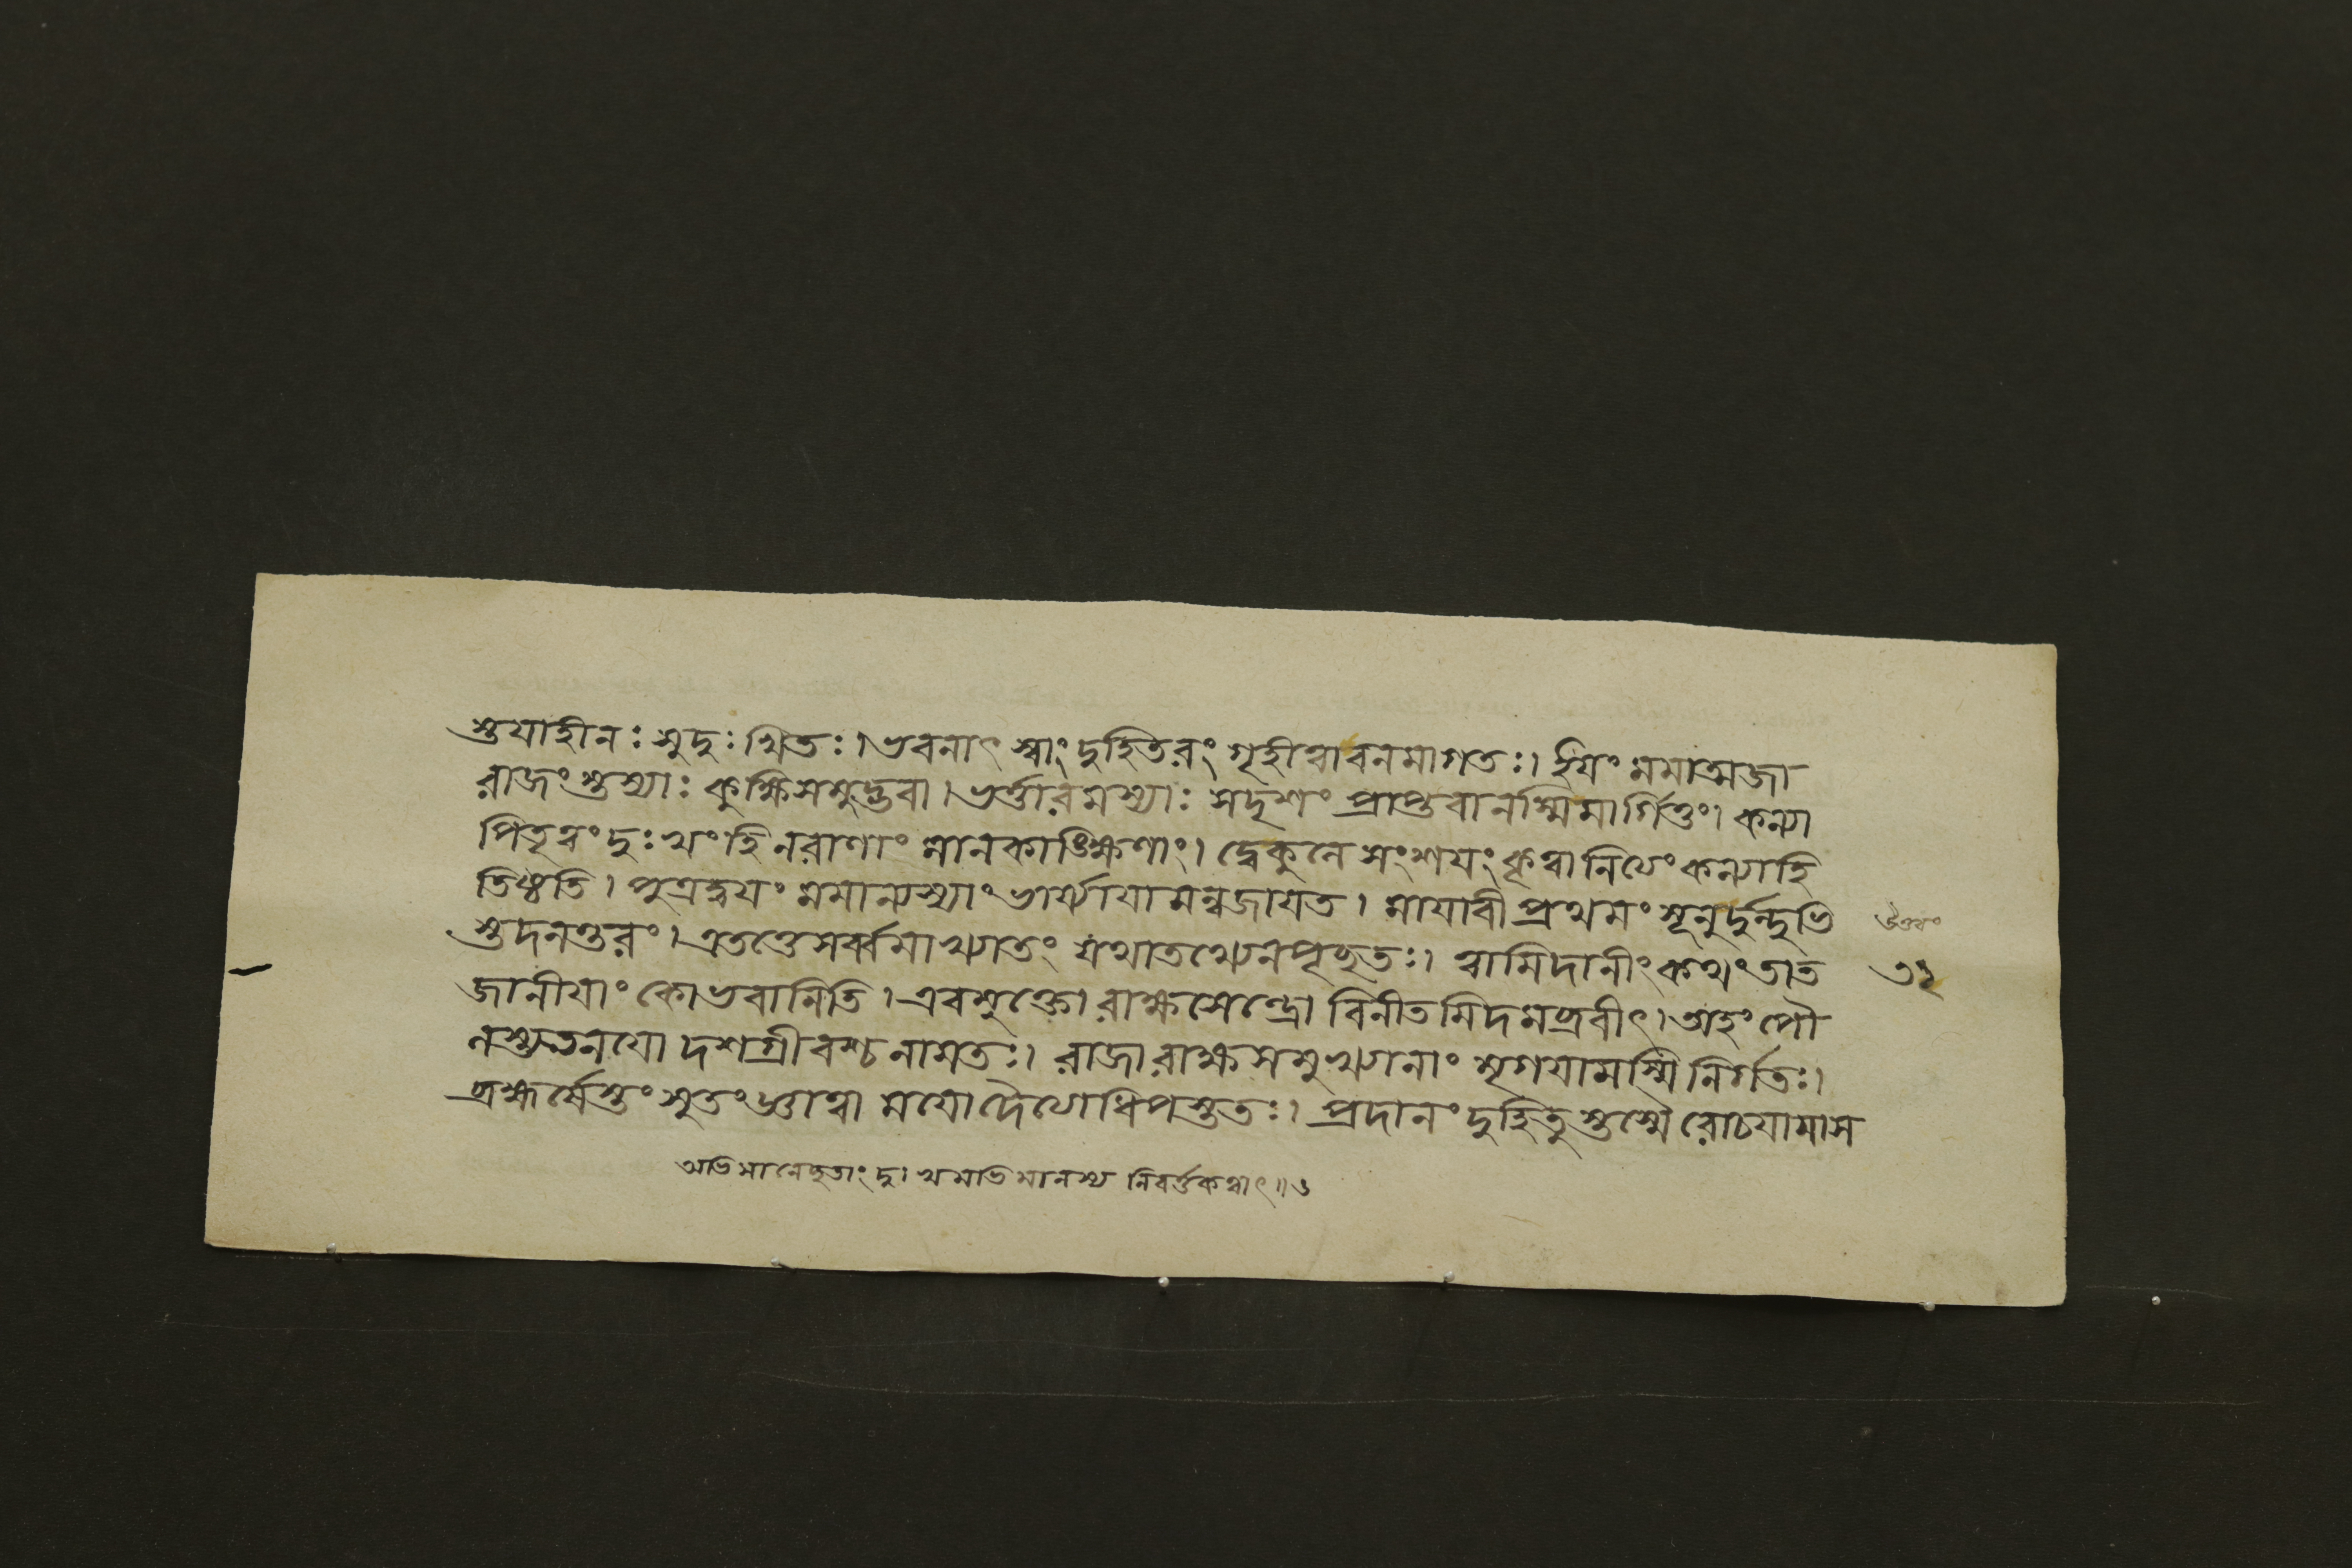 স্তয়াহীনঃ সুদুঃখিতঃ। ভবনাৎ স্বাং দুহিতরং গৃহীত্বাবনমাগতঃ। ইয়ং মমাত্মজা
রাজংস্তস্যাঃ কুক্ষিসমুদ্ভবা। ভর্ত্তারমস্যাঃ সদৃশং প্রাপ্তবানস্মিমার্গিতুং। কন্যা
পিতৃত্বং দুঃখং হি নরাণাং মানকাঙ্ক্ষিণাং। দ্বেকুলে সংশয়ং কৃত্বা নিত্যং কন্যাহি
তিষ্ঠতি। পুত্রদ্বয়ং মমান্যস্যাং ভার্য্যায়ামন্বজায়ত। মায়াবী প্রথমং সূনুর্দুন্দুভি
স্তদনন্তরং। এতত্তে সর্ব্বমাখ্যাতং যথাতথ্যেনপৃচ্ছতঃ। ত্বামিদানীং কথং তাত
জানীয়াং কোভবানিতি। এবমুক্তো রাক্ষসেন্দ্রো বিনীতমিদমব্রবীৎ। অহং পৌ
লস্ত্যতনয়ো দশগ্রীবশ্চ নামতঃ। রাজা রাক্ষসমুখ্যানাং মৃগয়ামস্মি নির্গতঃ।
ব্রহ্মর্ষেস্তং সুতং জ্ঞাত্বা ময়ো দৈত্যোধিপস্ততঃ। প্রদানং দুহিতুস্তস্মৈ রোচয়ামাস
অভিমানেচ্ছূতাং দুঃখমভিমানস্য নিবর্ত্তকত্বাৎ॥৬
উত্তরং
৩২